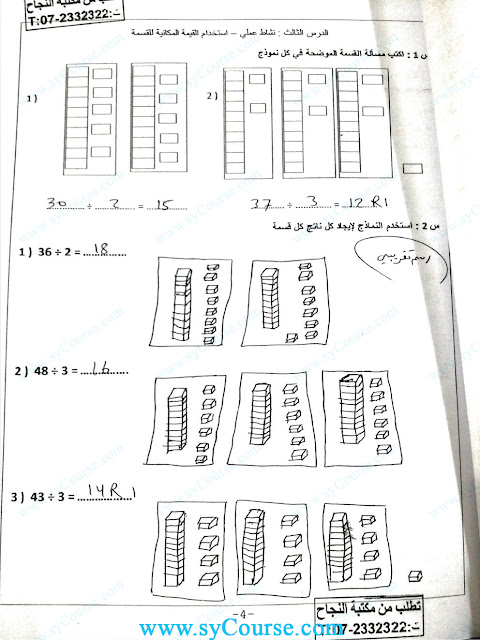 تطلب من مكتبة النجاح
T:07-2332322:ت
www.syCourse.com
الدرس الثالث : نشاط عملي – استخدام القيمة المكانية للقسمة
س 1 : اكتب مسألة القسمة الموضحة في كل نموذج
1 )
2 )
30 ÷ 2 = 15
37 ÷ 3 = 12 R1
س 2 : استخدم النماذج لإيجاد كل ناتج كل قسمة
رسم تقريبي
1 ) 36 ÷ 2 = 18
2 ) 48 ÷ 3 = 16
3 ) 43 ÷ 3 = 14 R 1
-4-
تطلب من مكتبة النجاح
ت:07-2332322
www.syCourse.com